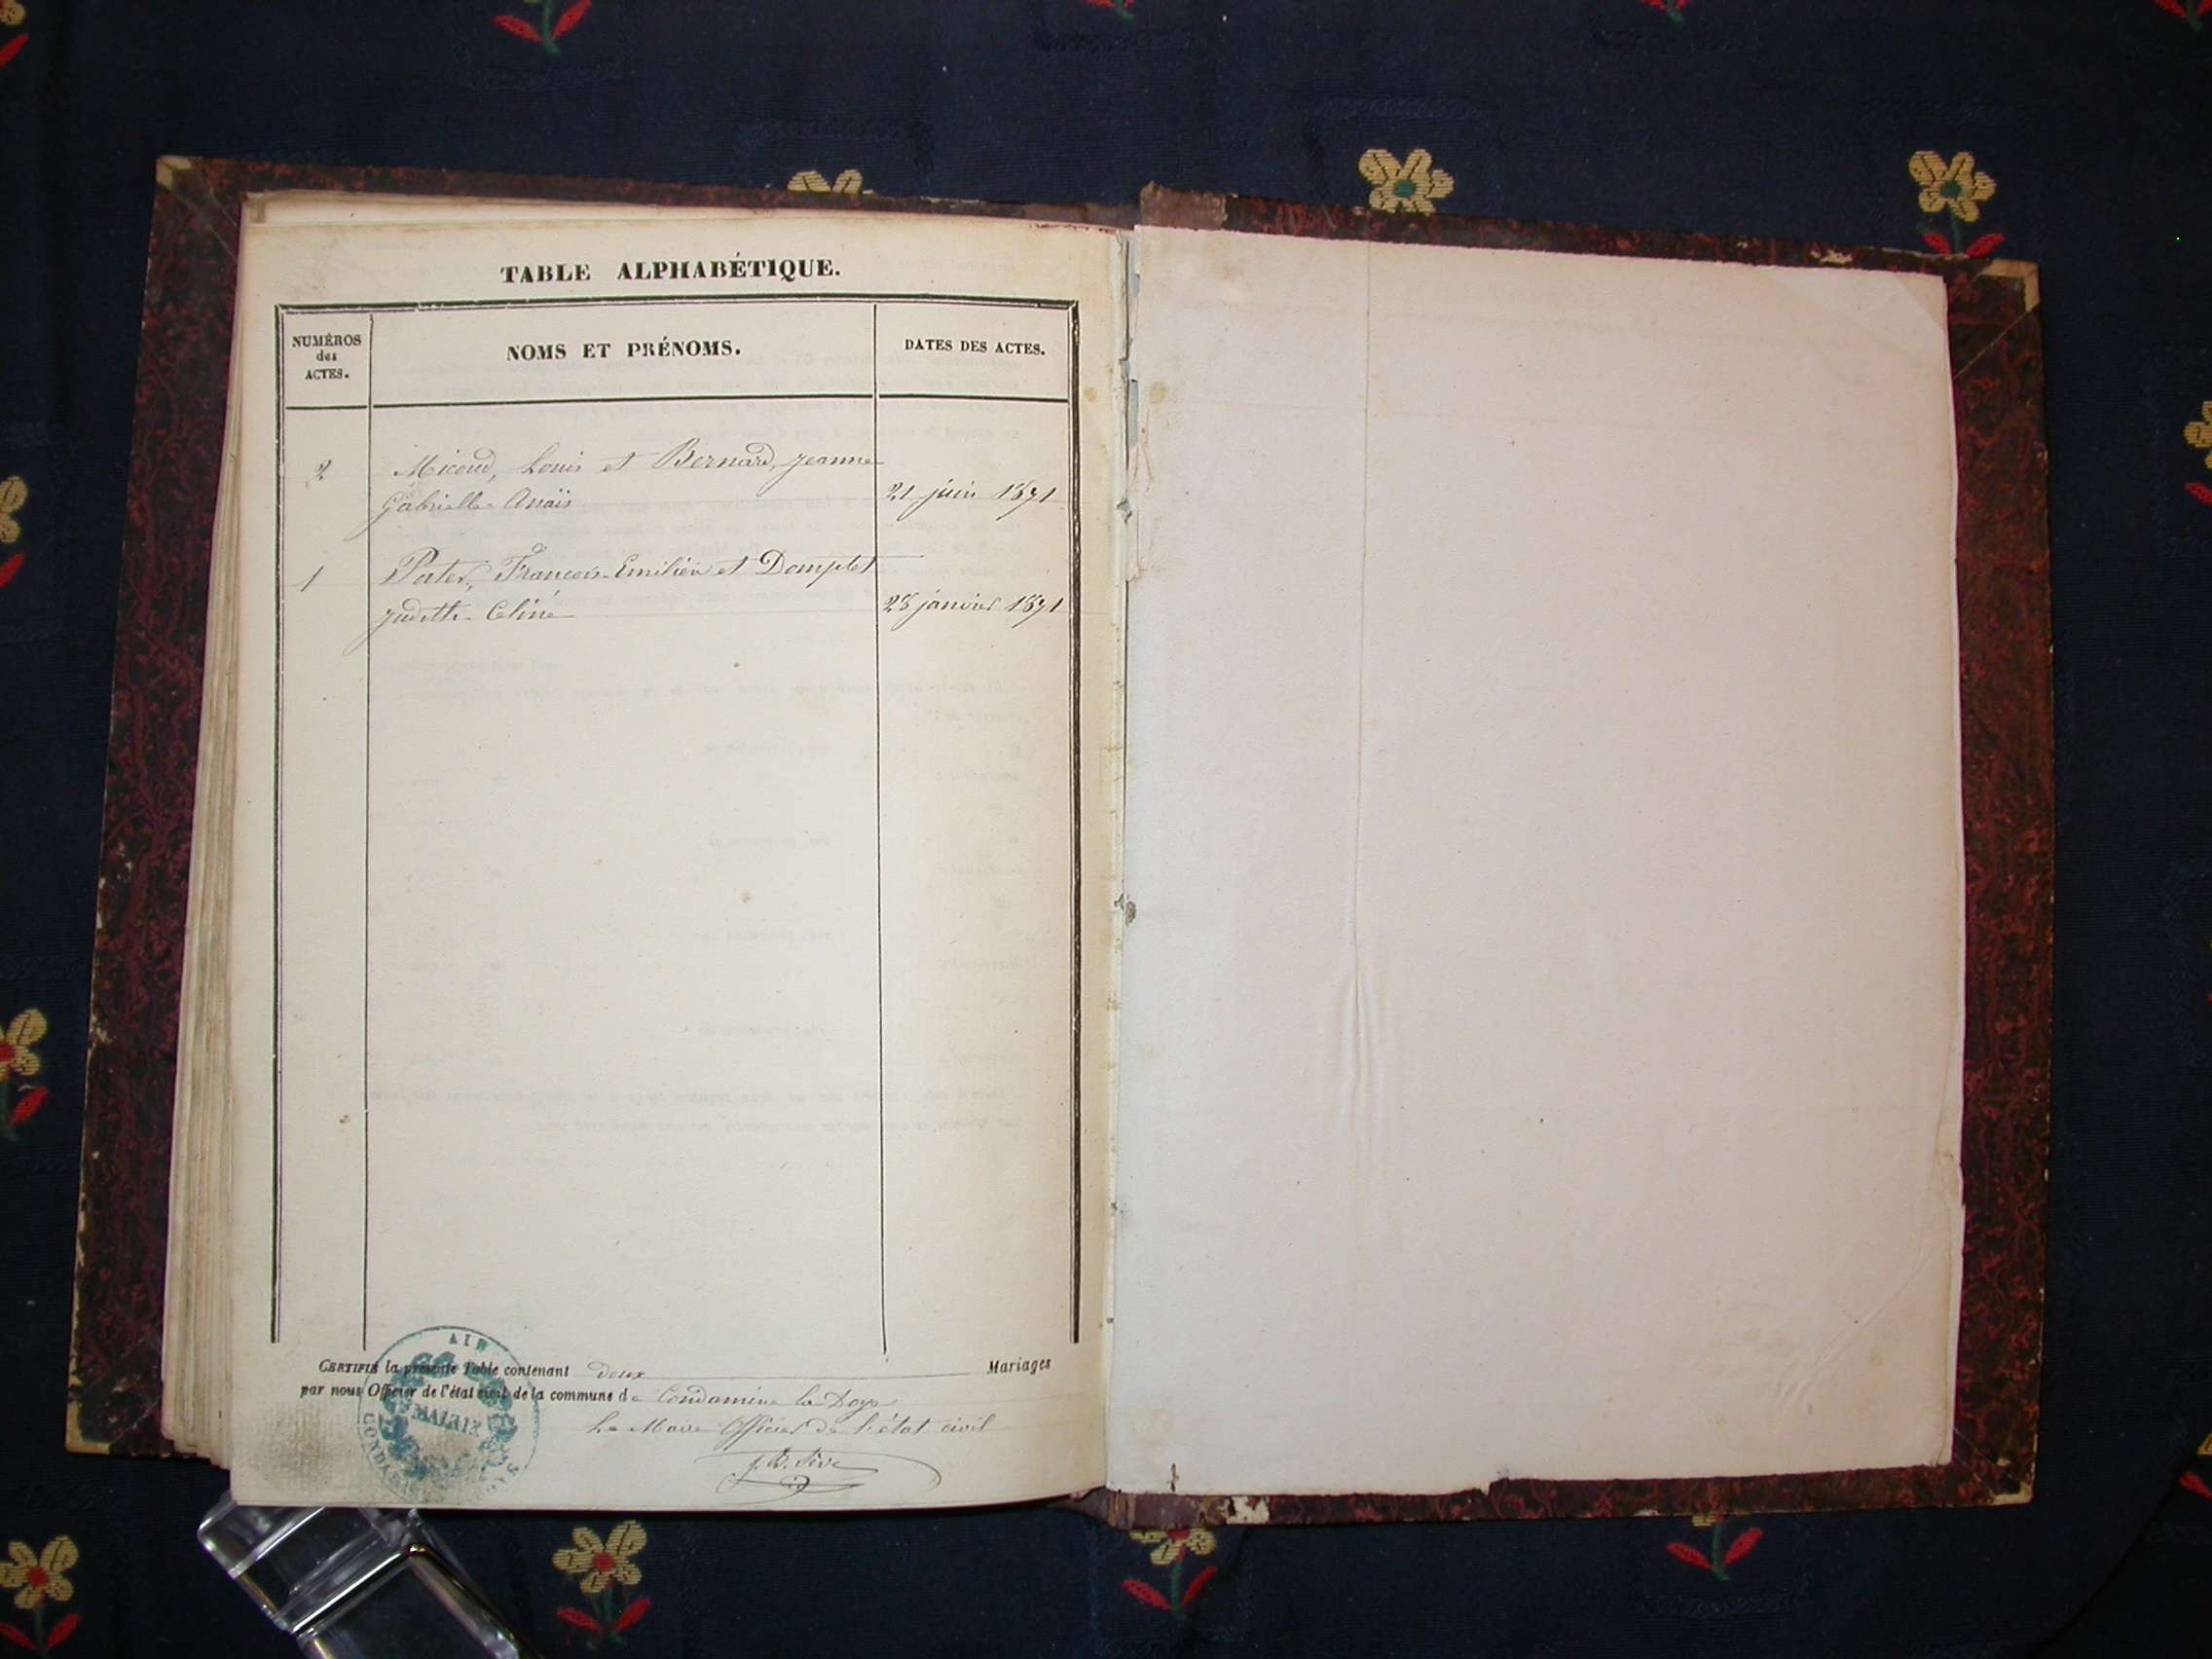 TABLE ALPHABÉTIQUE.
NUMÉROS
des
ACTES.
NOMS ET PRÉNOMS.
DATES DES ACTES.
2 Micoud, Louis et Bernard, Jeanne
Gabrielle Anaïs 21 juin 1871
1 Pater, François-Emilien et Domplet
Judith-Celine 28 janvier 1871
CERTIFIÉ la présente Table contenant deux Mariages
par nous Officier de l'état civil de la commune de Condamine la Doye
Le Maire Officier de l'état civil
J. B. Sive
AIN
MAIRIE